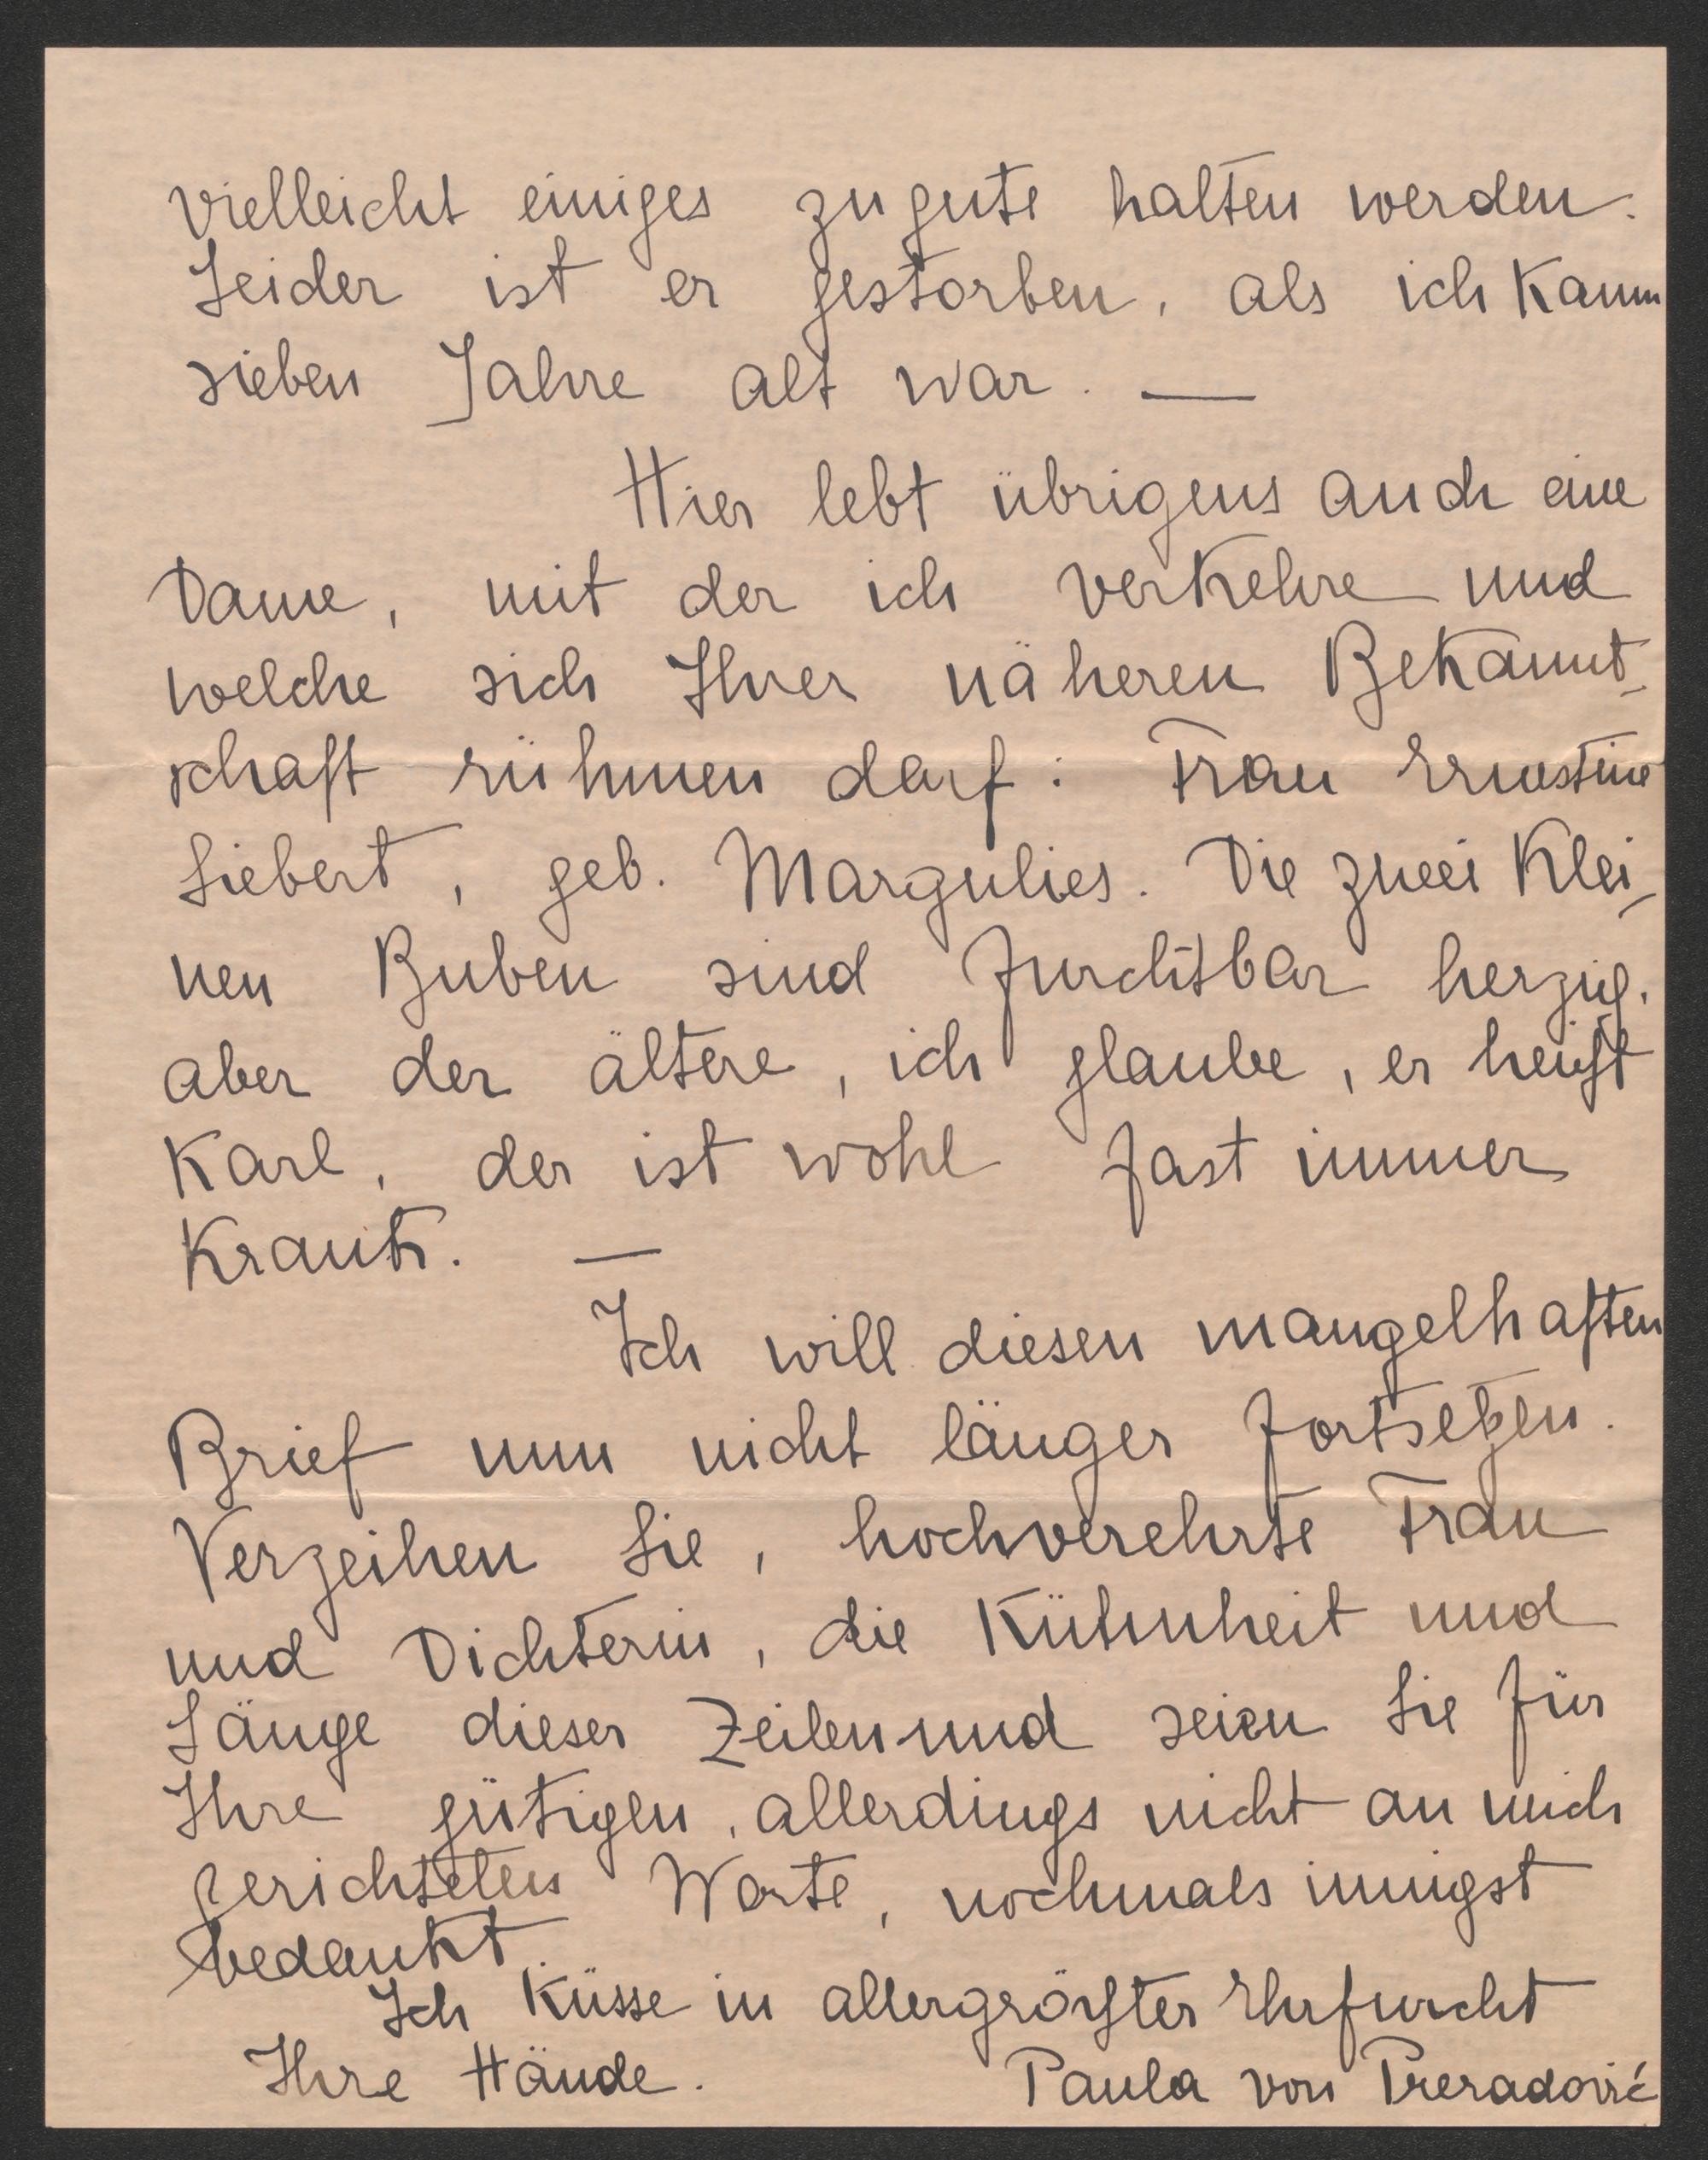 vielleicht einiges zugute halten werden.
Leider ist er gestorben, als ich kaum
sieben Jahre alt war. —
Hier lebt übrigens auch eine
Dame, mit der ich verkehre und
welche sich Ihrer näheren Bekannt-
schaft rühmen darf: Frau Ernestine
Siebert, geb. Margulies. Die zwei klei-
nen Buben sind furchtbar herzig,
aber der ältere, ich glaube, er heißt
Karl, der ist wohl fast immer
krank. —
Ich will diesen mangelhaften
Brief nun nicht länger fortsetzen.
Verzeihen Sie, hochverehrte Frau
und Dichterin, die Kühnheit und
Länge dieser Zeilen und seien Sie für
Ihre gütigen, allerdings nicht an mich
gerichteten Worte, nochmals innigst
bedankt.
Ich küsse in allergrößter Ehrfurcht
Ihre Hände.
Paula von Preradović